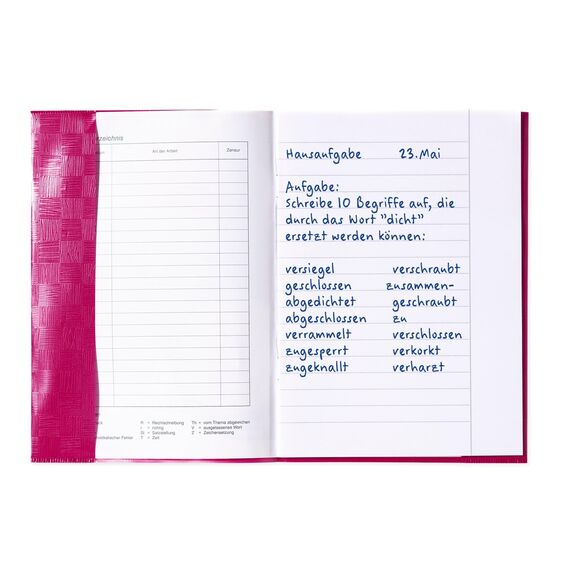 zeichnis
Art der Arbeit
Zensur
R = Rechtschreibung
Th = vom Thema abgewichen
V = ausgelassenes Wort
Z = Zeichensetzung
T = Zeit
Hausaufgabe 23.Mai
Aufgabe:
Schreibe 10 Begriffe auf, die
durch das Wort "dicht"
ersetzt werden können:
versiegel verschraubt
geschlossen zusammen-
abgedichtet geschraubt
abgeschlossen zu
verrammelt verschlossen
zugesperrt verkorkt
zugeknallt verharzt